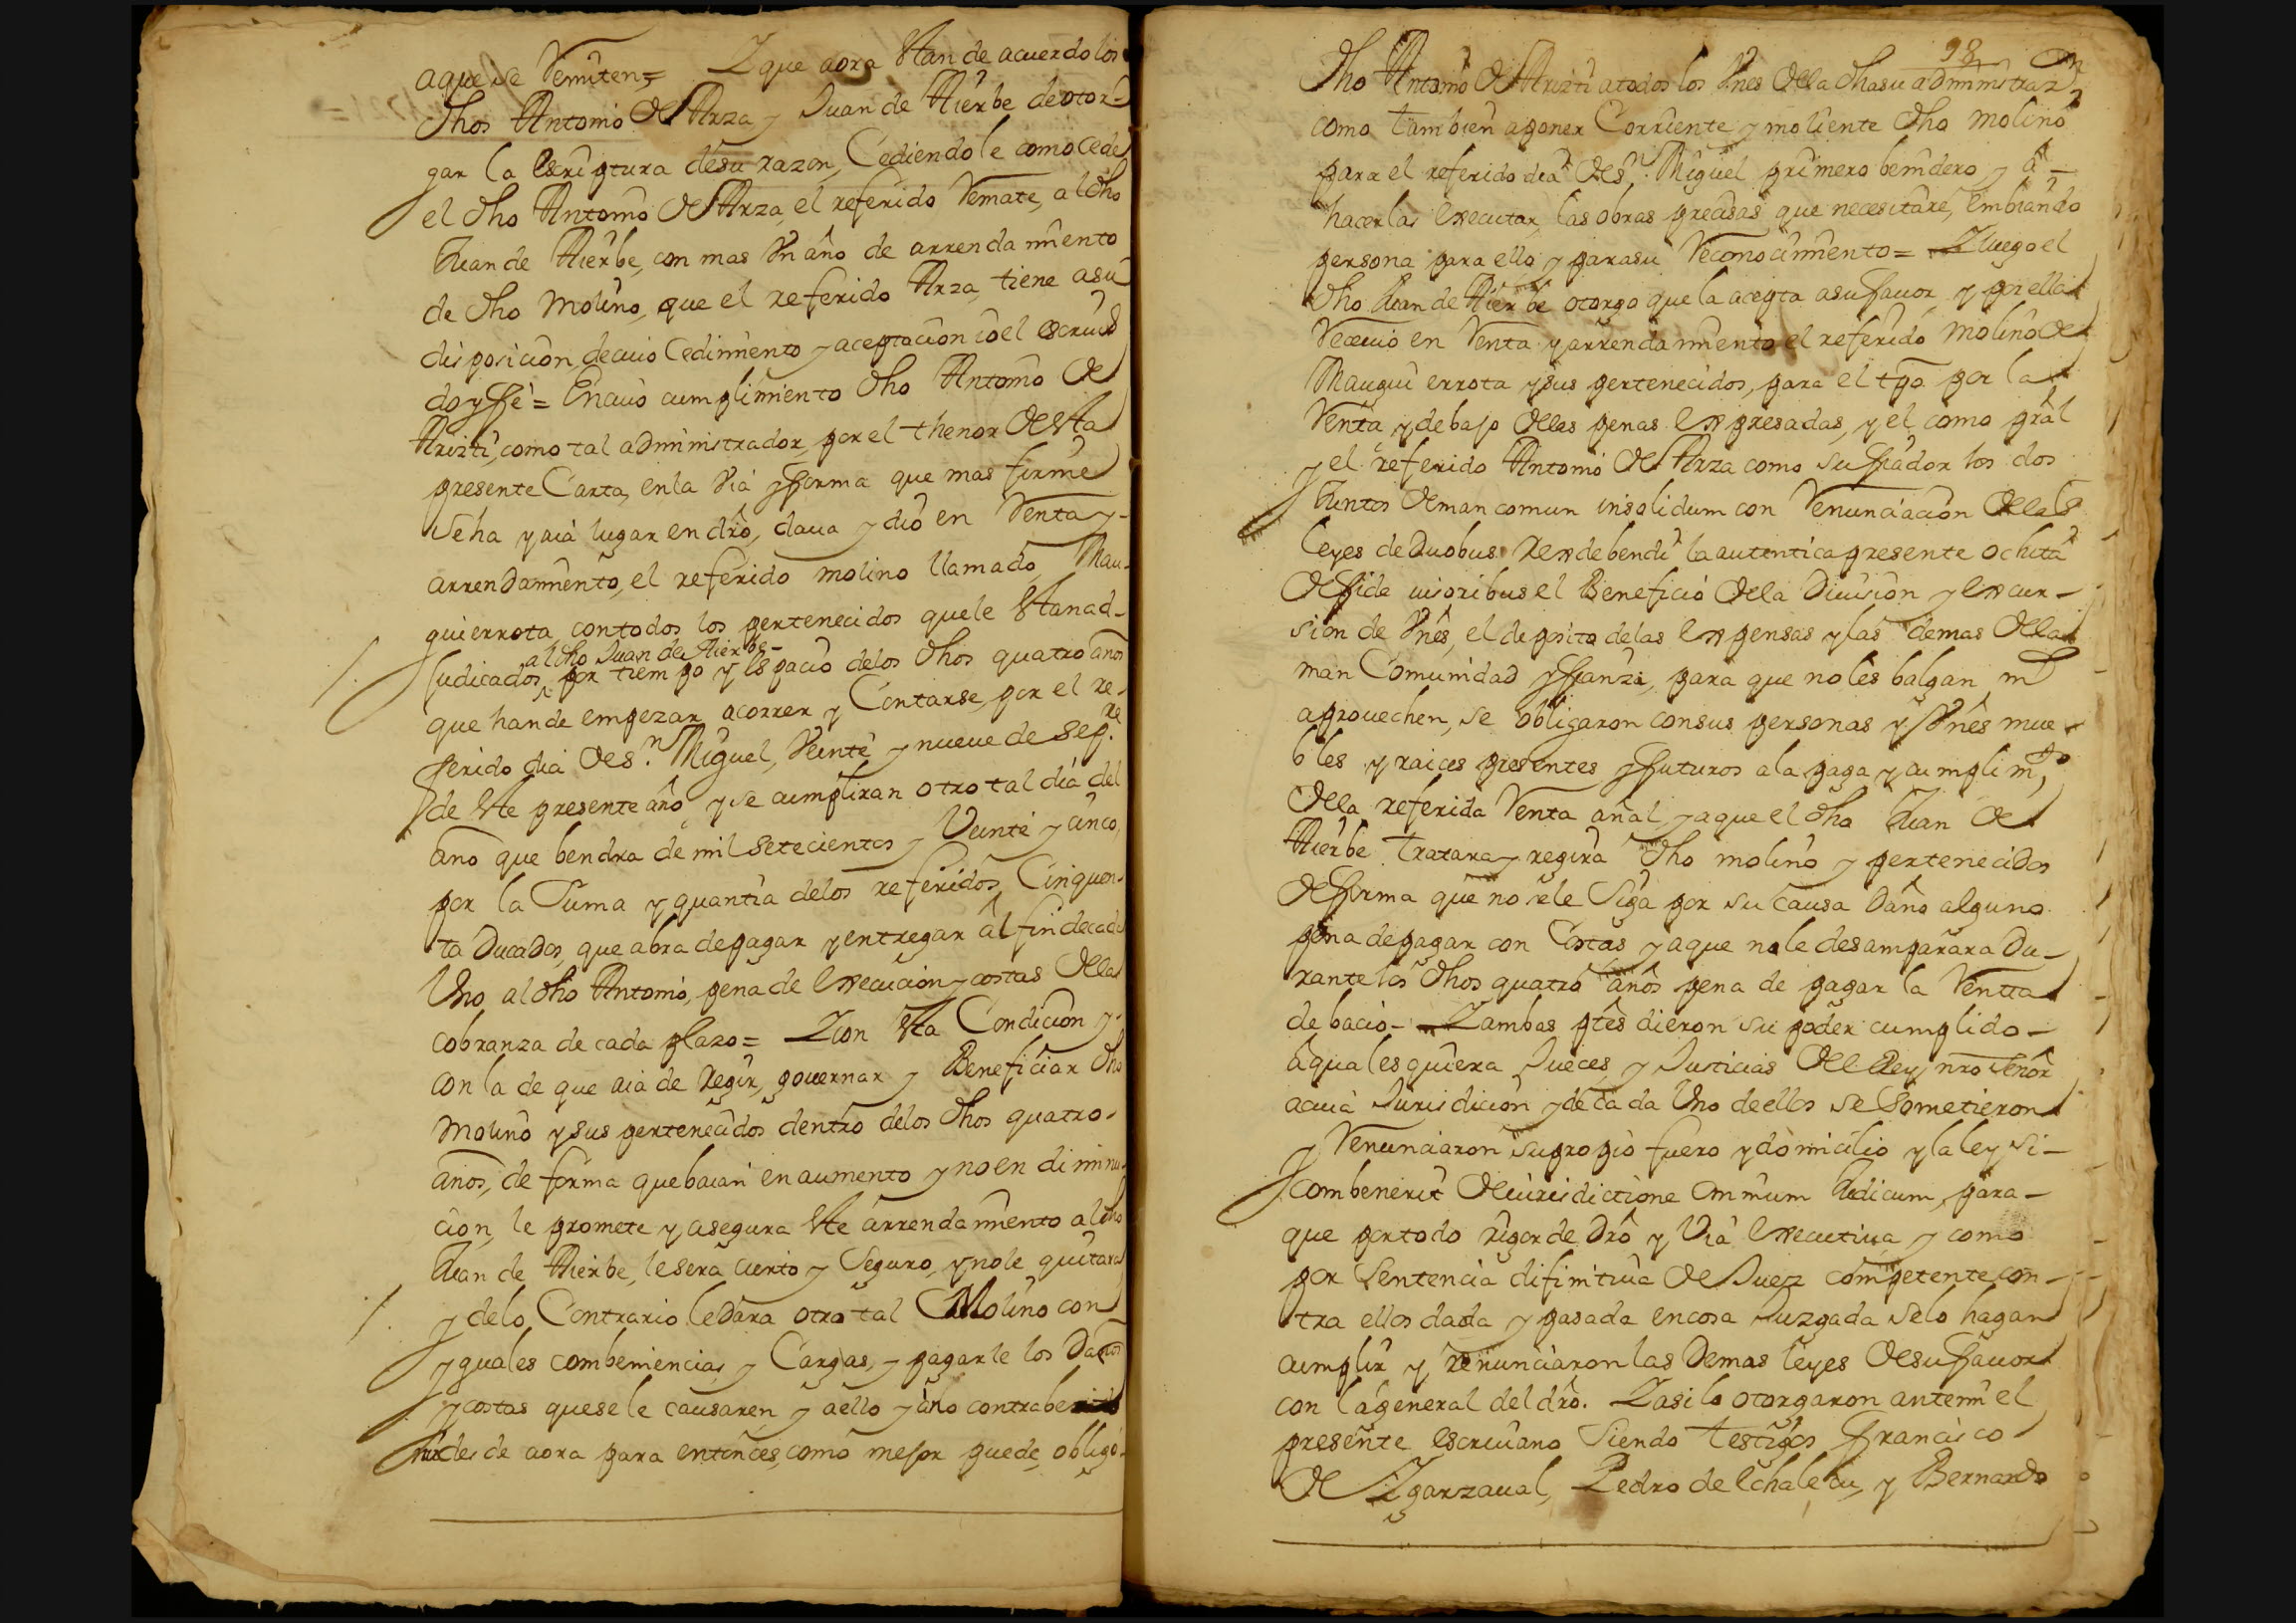 aque se Remiten = Y que aora Estan de acuerdo los
dhos Antonio de Arza y Juan de Hierbe de otor-
gar la escriptura de su razon, Cediendole como cede
el dho Antonio de Arza, el referido Remate, al dho
Juan de Hierbe, con mas Un año de arrendamiento
de dho Molino, que el referido Arza, tiene asu
disposicion, de cuio Cedimiento y aceptacion io el escriuº
doy ffe = En cuio cumplimiento dho Antonio de
Arizti, como tal administrador, por el thenor de esta
presente Carta, en la Via y forma que mas firme
Se ha y aia lugar en dro, daua y dio en Renta y
arrendamiento, el referido molino llamado Mau-
guierrota, con todos los pertenecidos que le Estan ad-
al dho Juan de Hierbe-
judicados, por tiempo y espacio de los dhos quatro años
que han de empezar, acorrer y Contarse, por el re-
ferido dia de Sn. Miguel, Veinte y nueue de Sepre.
de este presente año, y se cumpliran otro tal dia del
año que bendra de mil setecientos y Veinte y cinco,
por la Suma y quantia de los referidos Cinquen-
ta Ducados, que abra de pagar y entregar al fin de cada
Uno, al dho Antonio, pena de execucion y costas de la
cobranza de cada plazo = Y con esta Condicion y
con la de que aia de Regir, gouernar y Beneficiar dho
Molino y sus pertenecidos dentro de los dhos quatro
años, de forma que baian en aumento y no en diminu-
cion, le promete y asegura este arrendamiento al dho
Juan de Hierbe, le sera cierto y Seguro, y no le quitara
y de lo Contrario le Dara otro tal Molino con
yguales combeniencias y Cargas, y pagarle los Daños
y costas que se le causaren y aello y a no contrabe
nir desde aora para entonces, como mejor puede, obligo
98
dho Antonio de Arizti atodos los Vnes de la dha su administrazon
como tambien aponer Corriente y moliente dho molino
para el referido dia de Sn. Miguel primero benidero y a
hacerlas executar, las obras precisas que necesitare, embiando
persona para ello y para su Reconocimiento = Y luego el
dho Juan de Hierbe otorgo que la acepta asu fauor, y por ella
Reciuio en Renta y arrendamiento el referido molino de
Mauguierrota y sus pertenecidos, para el tpo. por la
Renta y debajo de las penas expresadas, y el como pral
y el referido Antonio de Arza como su fiador los dos
Juntos de man comun insolidum con Renunciacion de las
leyes de Duobus Rex debendi la autentica presente ochita
de fide iusoribus el Beneficio de la Diuision y excur-
sion de Vnes, el deposito de las expensas y las demas de la
man Comunidad y fianza, para que no les balgan ni
aprouechen, se obligaron con sus personas y Vnes mue-
bles y raices presentes y futuros ala paga y cumplimto,
de la referida Renta añal, y aque el dho Juan de
Hierbe Tratara y regira dho molino y pertenecidos
de forma que no se le Siga por su causa Daño alguno
pena de pagar con Costas y aque no le desamparara Du-
rante los dhos quatro años pena de pagar la Renta
de bacio- Y ambas ptes dieron su poder cumplido
aqualesquiera Jueces y Justicias del Rey nro Señor
acuia Jurisdicion y de cada Uno de ellos se Sometieron
y Renunciaron su propio fuero y domicilio y la ley Si-
combenerit de iurisdictione omnium Judicum, para-
que por todo rigor de dro y Via executiua y como
por Sentencia difinitiua de Juez competente con-
tra ellos dada y pasada en cosa Juzgada se lo hagan
cumplir y renunciaron las Demas leyes de su fauor
con la general del dro. Y asi lo otorgaron ante mi el
presente escriuano Siendo testigos francisco
de Ygarzaual, Pedro de Echalecu, y Bernardo